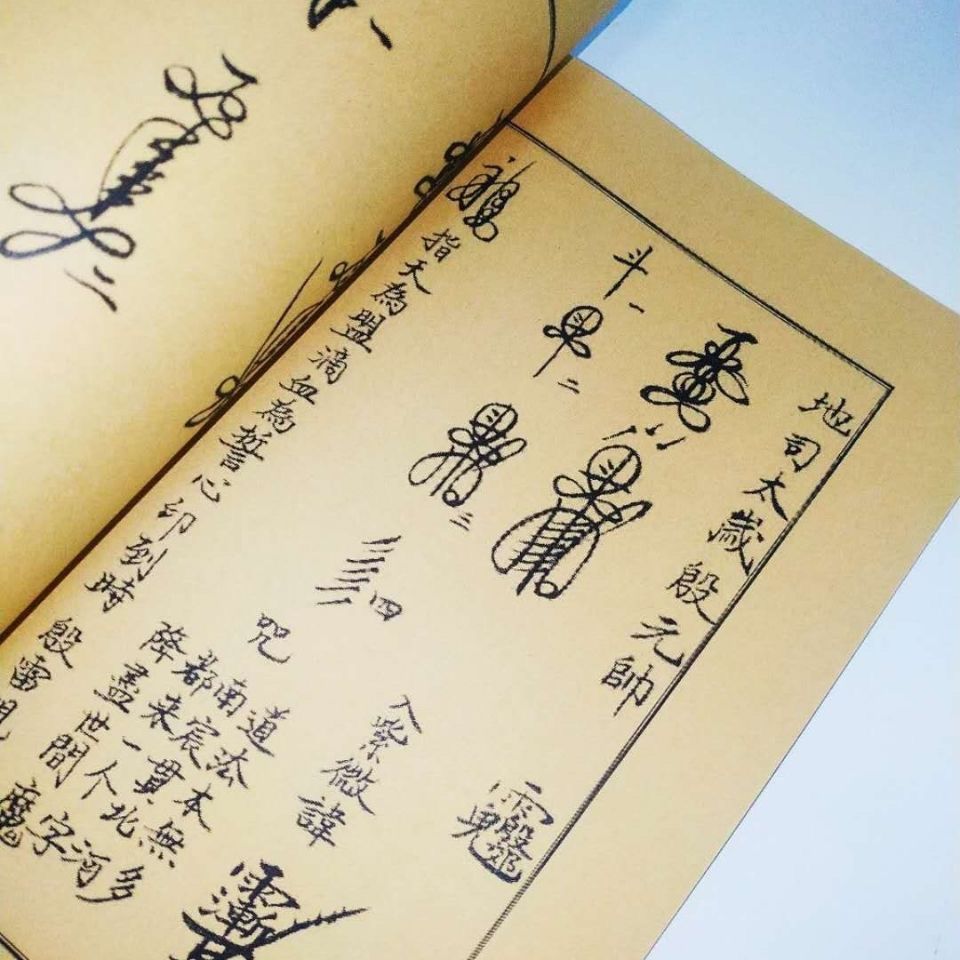 地司太歲殷元帥
斗一
二
三
四
入紫微諱
咒
道法本無多
南宸貫北河
都来一个字
降盡世間魔
指天為盟滴血為誓心印到時殷雷
一
二